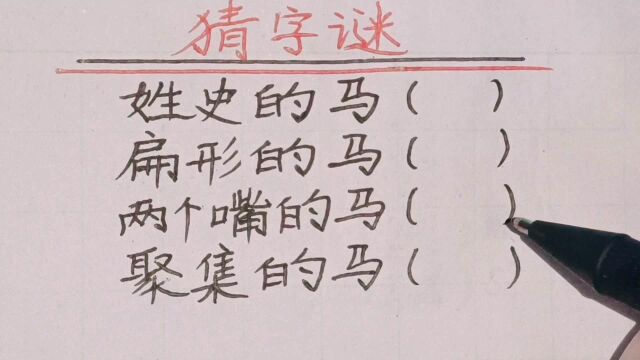 猜字谜
姓史的马( )
扁形的马( )
两个嘴的马( )
聚集的马( )